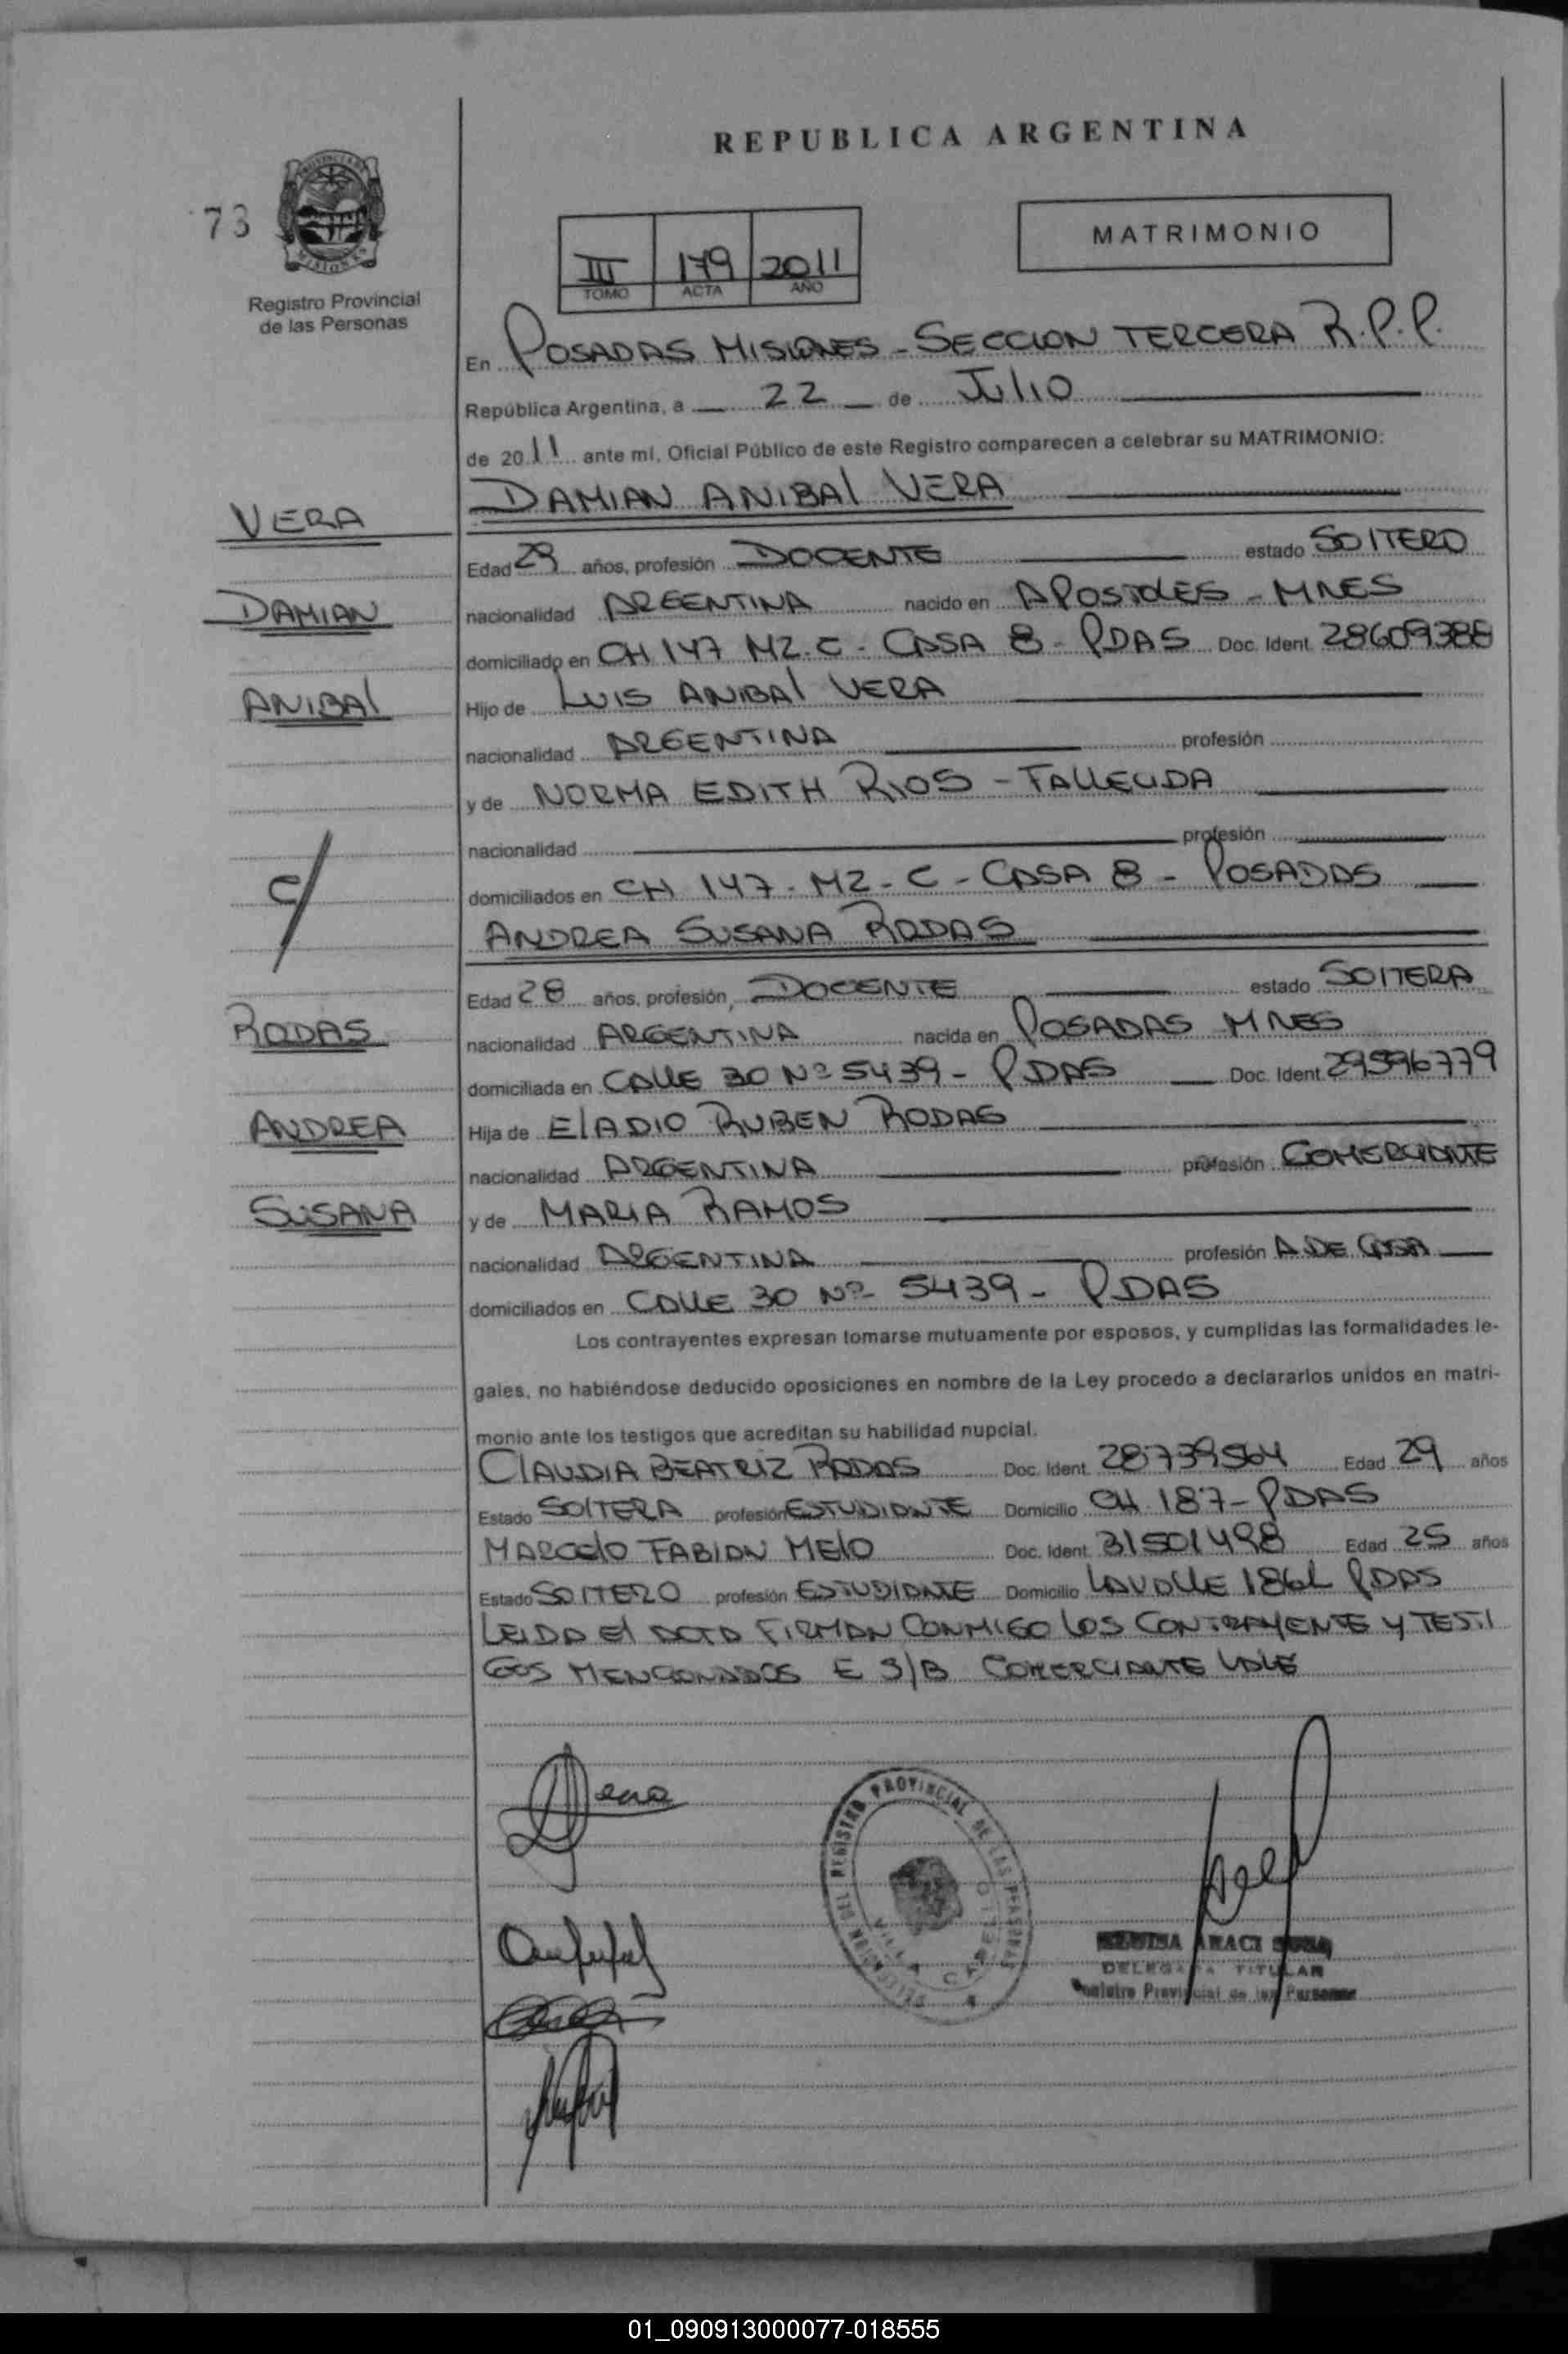 REPUBLICA ARGENTINA
73
MATRIMONIO
III 179 2011
TOMO ACTA AÑO
Registro Provincial
de las Personas
En POSADAS MISIONES - SECCION TERCERA R.P.P.
República Argentina, a 22 de JULIO
de 2011 ante mí, Oficial Público de este Registro comparecen a celebrar su MATRIMONIO:
DAMIAN ANIBAL VERA
VERA
Edad 29 años, profesión DOCENTE estado SOLTERO
DAMIAN
nacionalidad ARGENTINA nacido en APOSTOLES - MNES
domiciliado en CH 147 MZ. C - CASA 8 - PDAS Doc. Ident. 28609388
ANIBAL
Hijo de LUIS ANIBAL VERA
nacionalidad ARGENTINA profesión
y de NORMA EDITH RIOS - FALLECIDA
nacionalidad profesión
C/
domiciliados en CH 147 - MZ - C - CASA 8 - POSADAS
ANDREA SUSANA RODAS
Edad 28 años, profesión, DOCENTE estado SOLTERA
RODAS
nacionalidad ARGENTINA nacida en POSADAS MNES
domiciliada en CALLE 30 Nº 5439 - PDAS Doc. Ident. 29596779
ANDREA
Hija de ELADIO RUBEN RODAS
nacionalidad ARGENTINA profesión COMERCIANTE
SUSANA
y de MARIA RAMOS
nacionalidad ARGENTINA profesión A DE CASA
domiciliados en CALLE 30 Nº 5439 - PDAS
Los contrayentes expresan tomarse mutuamente por esposos, y cumplidas las formalidades le-
gales, no habiéndose deducido oposiciones en nombre de la Ley procedo a declararlos unidos en matri-
monio ante los testigos que acreditan su habilidad nupcial.
CLAUDIA BEATRIZ RODAS Doc. Ident. 28739564 Edad 29 años
Estado SOLTERA profesión ESTUDIANTE Domicilio CH 187 - PDAS
MARCELO FABIAN MELO Doc. Ident. 31501498 Edad 25 años
Estado SOLTERO profesión ESTUDIANTE Domicilio LAVALLE PDAS
LEIDA EL ACTA FIRMAN CONMIGO LOS CONTRAYENTE Y TESTI
GOS MENCIONADOS E S/B COMERCIANTE VALE
DELEGACION DEL REGISTRO PROVINCIAL DE LAS PERSONAS
VILLA CABELLO
ARACI
DELEGADA TITULAR
Registro Provincial de las Personas
01_090913000077-018555